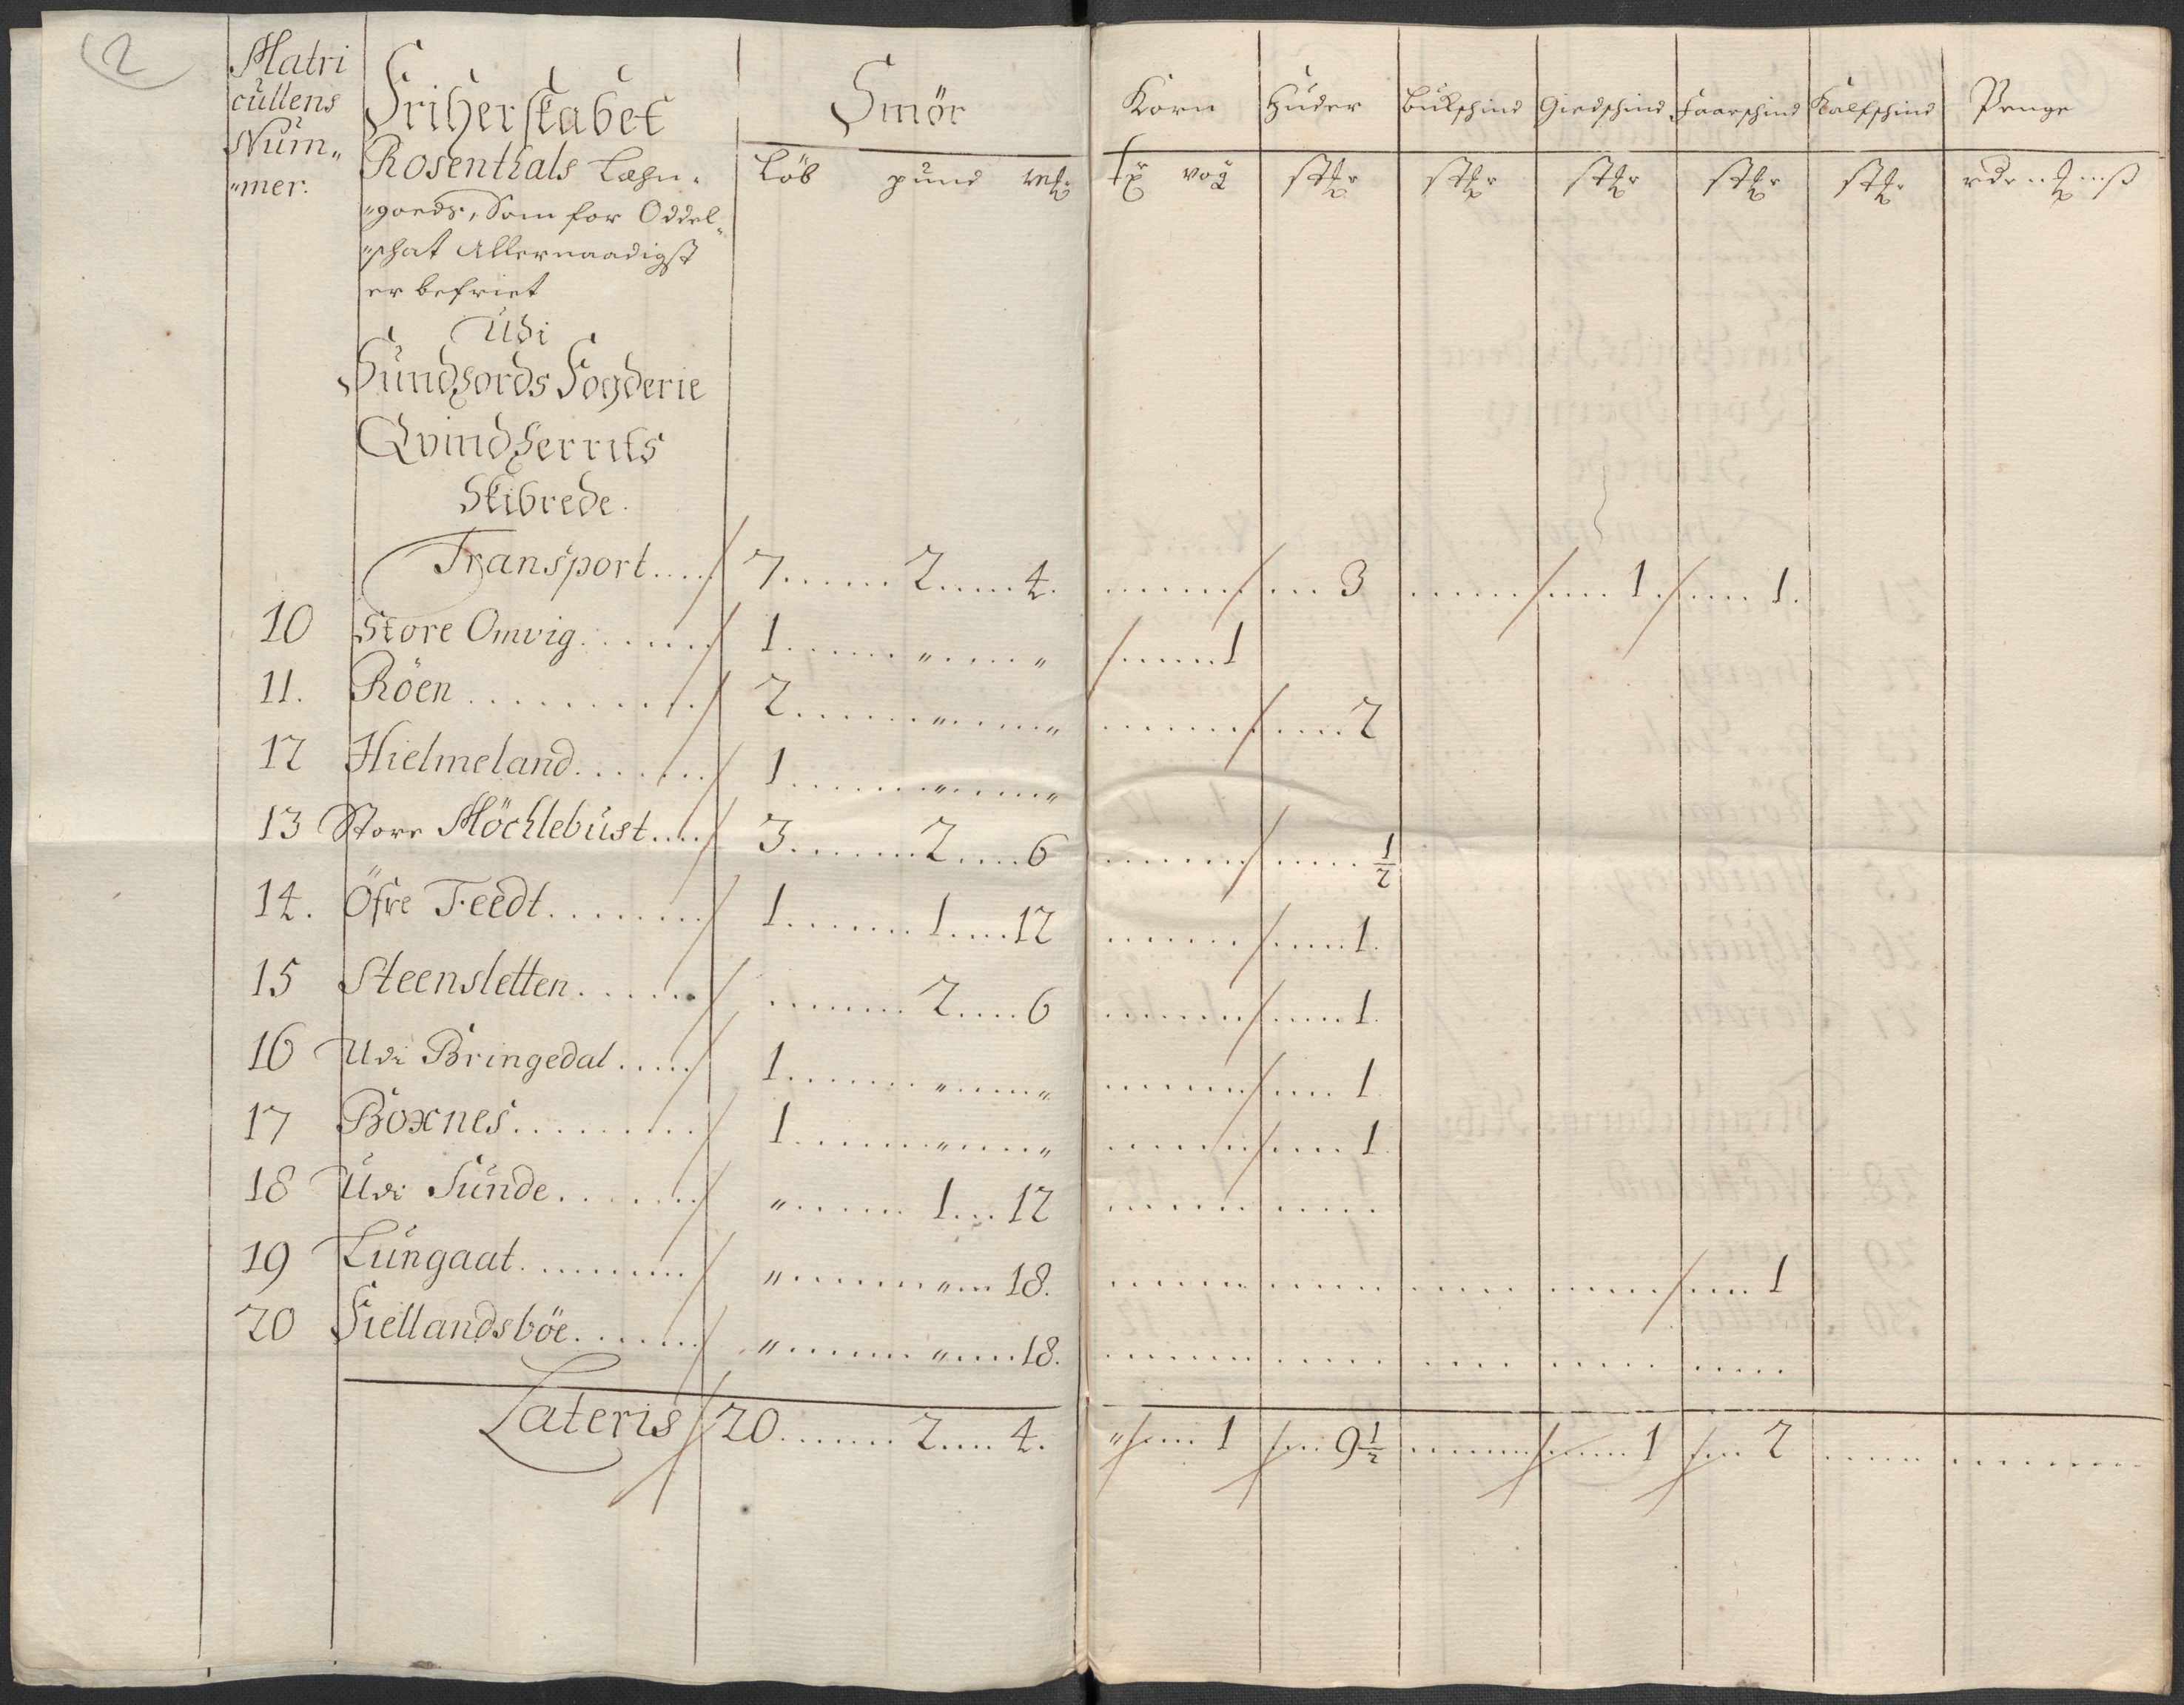 2
Matri
cullens
Num„
„mer.
Friherskabet
Rosenthals Læhn„
„goeds, Som for Oddel„
„schat Allernaadigst
er befriet
Udi
Sundhords Fogderie
Qvindherrits
Skibrede.
Smör
Löb pund
Korn Huder Bukschind Giedschind Faarschind Kalfschind Penge
vog
Transport.... 7...... 2.... 4. ....... ... 3 ...... .... 1. .... 1.
10 Store Omvig....... 1...... „..... „ ......1
11. Röen.......... 2...... „..... „ ....... .... 2
12 Hielmeland....... 1....... „..... „
13 Store Möchlebust.... 3....... 2.... 6 ....... ..... 1/2
14. Öfre Feedt........ 1....... 1.... 12 ....... .... 1.
15 Steensletten...... ....... 2.... 6 ....... .... 1.
16 Udi Bringedal..... 1....... „..... „ ....... .... 1.
17 Boxnes......... 1....... „..... „ ....... .... 1.
18 Udi Sunde....... „...... 1... 12 ....... .....
19 Lungaat......... „....... „... 18. ....... ...... ..... ...... .... 1
20 Fiellandsböe...... „....... „.... 18. ....... ..... ..... ..... .....
Lateris 20....... 2.... 4. „.... 1 ... 9 1/2 ....... .... 1 ... 2 ..... ........